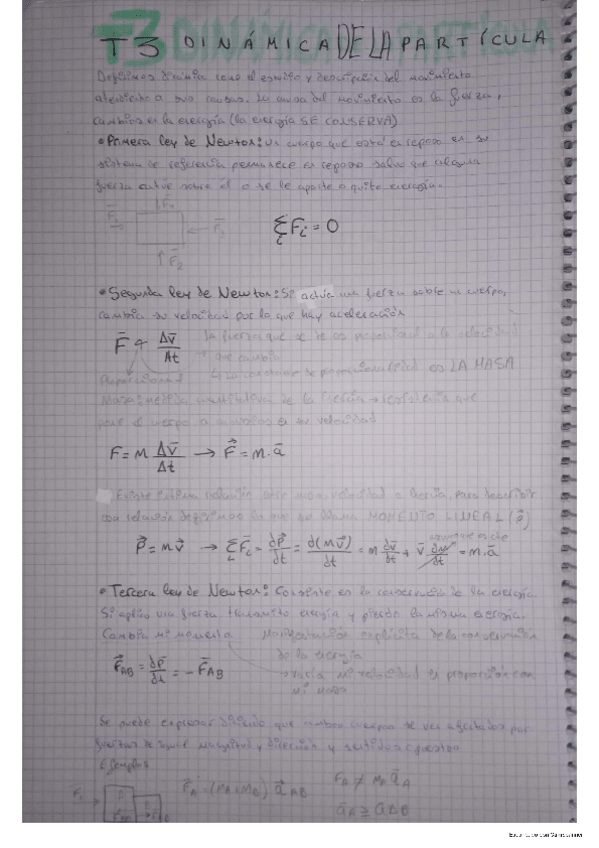 T3 DINÁMICA DE LA PARTÍCULA
Definimos dinámica como el estudio y descripción del movimiento
atendiendo a sus causas. La causa del movimiento es la fuerza,
cambios en la energía (la energía SE CONSERVA)
• Primera ley de Newton: un cuerpo que está en reposo en su
sistema de referencia permanece en reposo salvo que alguna
fuerza actúe sobre él o se le aporte o quite energía.
ΣFi = 0
F₂
• Segunda ley de Newton: Si actúa una fuerza sobre un cuerpo,
cambia su velocidad por lo que hay aceleración
F̄ α Δv̄/Δt
La fuerza que se le es proporcional a la velocidad
que cambia
La constante de proporcionalidad es LA MASA
proporcional
Masa: medida cuantitativa de la inercia → resistencia que
pone el cuerpo a cambios en su velocidad
F = M Δv̄/Δt → F⃗ = m·ā
relación velocidad e inercia, para describir
relación definimos lo que se llama MOMENTO LINEAL (p̄)
P⃗ = M v⃗ → ΣF̄i = dp̄/dt = d(Mv̄)/dt = m dv̄/dt + v̄ dm/dt = m·ā
• Tercera ley de Newton: Consiste en la conservación de la energía.
Si aplico una fuerza transmito energía y pierdo la misma energía.
Cambia mi momento
Manifestación explícita de la conservación
de la energía
→ varía mi velocidad en proporción con
mi masa
F⃗AB = dp̄/dt = - F̄AB
Se puede expresar diciendo que ambos cuerpos se ven afectados por
fuerzas de igual magnitud y dirección y sentidos opuestos
Ejemplos
F̄A = (MA+MB) ā AB
FA ≠ MA āA